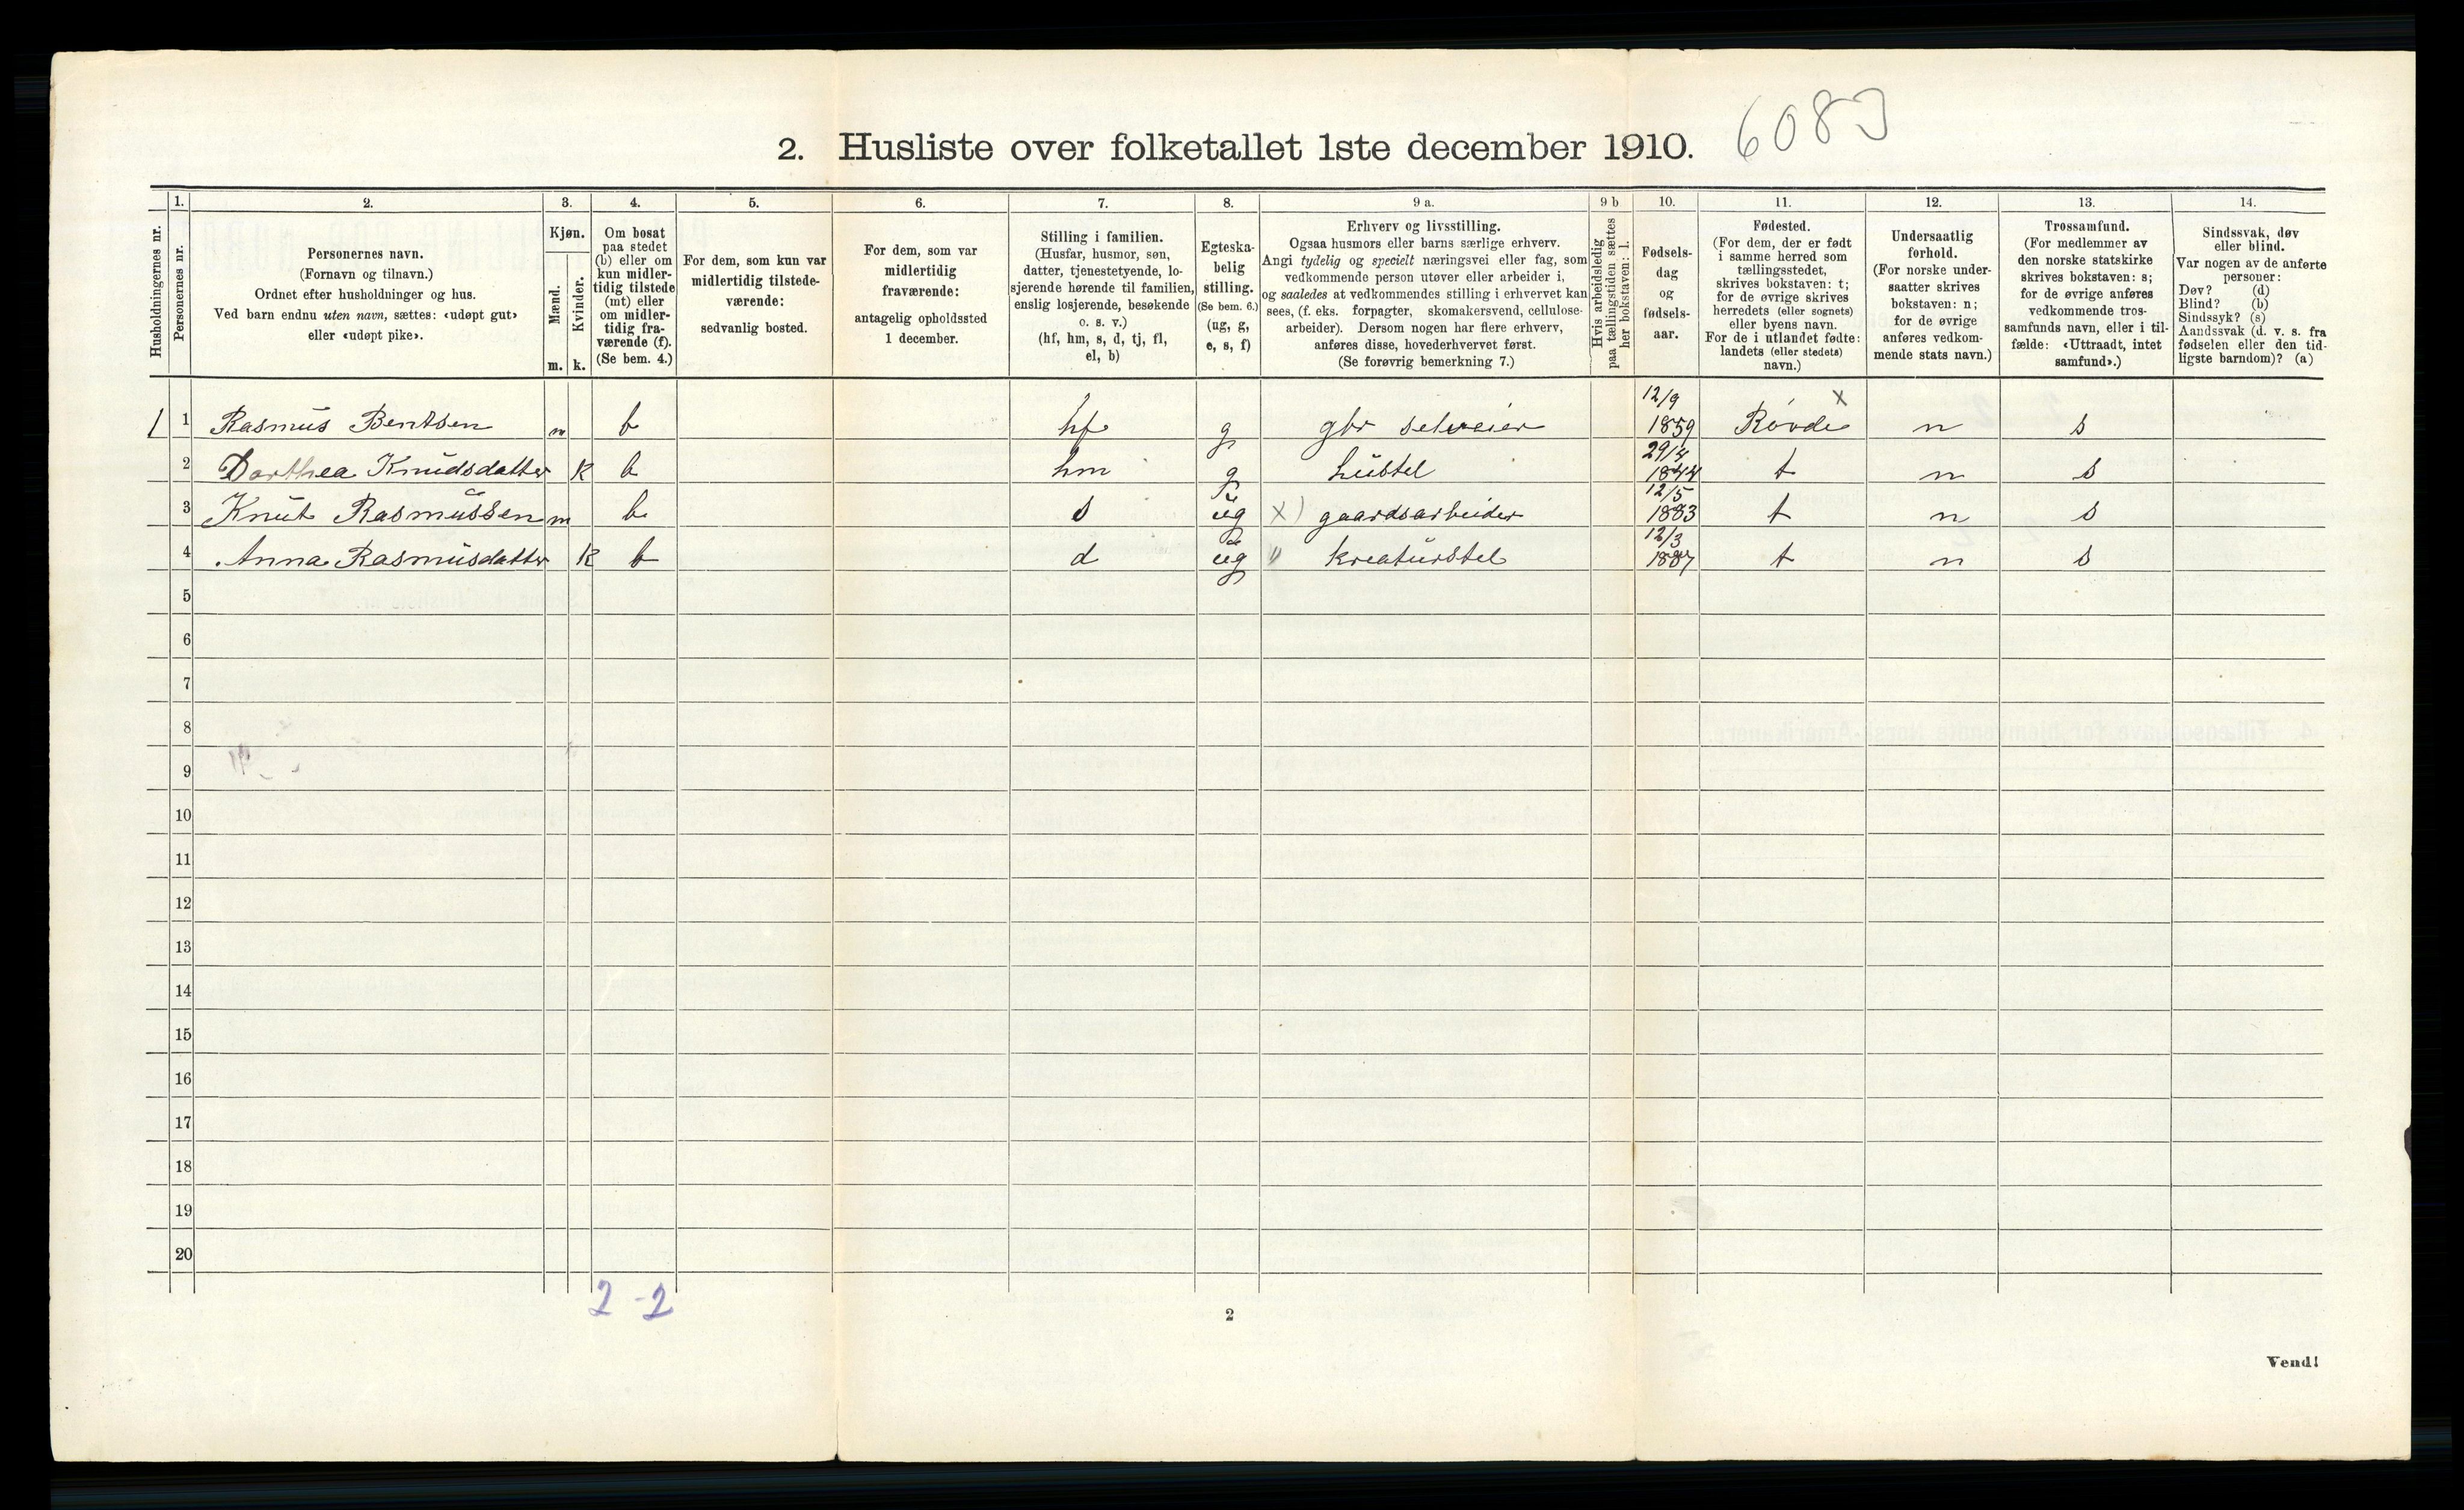 2. Husliste over folketallet 1ste december 1910. 6083
Husholdningernes nr.
1. Personernes nr.
2. Personernes navn.
(Fornavn og tilnavn.)
Ordnet efter husholdninger og hus.
Ved barn endnu uten navn, sættes: «udøpt gut»
eller «udøpt pike».
3. Kjøn.
Mænd. m.
Kvinder. k.
4. Om bosat
paa stedet
(b) eller om
kun midler-
tidig tilstede
(mt) eller
om midler-
tidig fra-
værende (f).
(Se bem. 4.)
5. For dem, som kun var
midlertidig tilstede-
værende:
sedvanlig bosted.
6. For dem, som var
midlertidig
fraværende:
antagelig opholdssted
1 december.
7. Stilling i familien.
(Husfar, husmor, søn,
datter, tjenestetyende, lo-
sjerende hørende til familien,
enslig losjerende, besøkende
o. s. v.)
(hf, hm, s, d, tj, fl,
el, b)
8. Egteska-
belig
stilling.
(Se bem. 6.)
(ug, g,
e, s, f)
9 a. Erhverv og livsstilling.
Ogsaa husmors eller barns særlige erhverv.
Angi tydelig og specielt næringsvei eller fag, som
vedkommende person utøver eller arbeider i,
og saaledes at vedkommendes stilling i erhvervet kan
sees, (f. eks. forpagter, skomakersvend, cellulose-
arbeider). Dersom nogen har flere erhverv,
anføres disse, hovederhvervet først.
(Se forøvrig bemerkning 7.)
9 b Hvis arbeidsledig
paa tællingstiden sættes
her bokstaven: l.
10. Fødsels-
dag
og
fødsels-
aar.
11. Fødested.
(For dem, der er født
i samme herred som
tællingsstedet,
skrives bokstaven: t;
for de øvrige skrives
herredets (eller sognets)
eller byens navn.
For de i utlandet fødte:
landets (eller stedets)
navn.)
12. Undersaatlig
forhold.
(For norske under-
saatter skrives
bokstaven: n;
for de øvrige
anføres vedkom-
mende stats navn.)
13. Trossamfund.
(For medlemmer av
den norske statskirke
skrives bokstaven: s;
for de øvrige anføres
vedkommende tros-
samfunds navn, eller i til-
fælde: «Uttraadt, intet
samfund».)
14. Sindssvak, døv
eller blind.
Var nogen av de anførte
personer:
Døv? (d)
Blind? (b)
Sindssyk? (s)
Aandssvak (d. v. s. fra
fødselen eller den tid-
ligste barndom)? (a)
1 1 Rasmus Bentsen m b hf g gbr selveier 12/9 1859 Røvde x n s
2 Dorthea Knudsdatter k b hm g hustel 29/4 1844 t n s
3 Knut Rasmussen m b s ug x) gaardsarbeider 12/5 1883 t n s
4 Anna Rasmusdatter k b d ug " kreaturstel 12/3 1887 t n s
5
6
7
8
9
10
11
12
13
14
15
16
17
18
19
20
2 - 2
2
Vend!